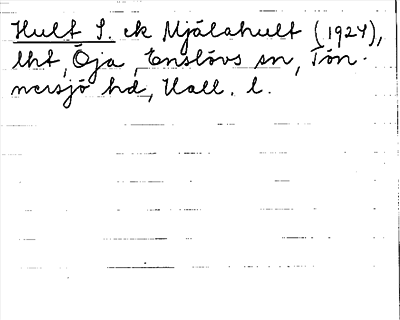 Hult S. ek Mjälahult (1924),
lht, Öja, Enslövs sn, Tön-
nersjö hd, Hall. l.